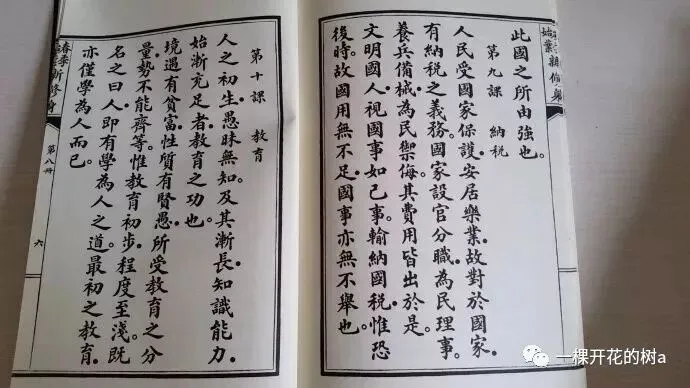 此國之所由強也。
第九課 納稅
人民受國家保護。安居樂業。故對於國家。
有納稅之義務。國家設官分職。為民理事。
養兵備械。為民禦侮。其費用皆出於是。
文明國人。視國事如己事。輸納國稅。惟恐
後時。故國用無不足。國事亦無不舉也。
第十課 教育
人之初生。愚昧無知。及其漸長。知識能力。
始漸充足者。教育之功也。
境遇有貧富。性質有賢愚。所受教育之分
量。勢不能齊等。惟教育初步。程度至淺。既
名之曰人。即有學為人之道。最初之教育。
亦僅學為人而已。
新修身
第八冊
六
一棵开花的树a